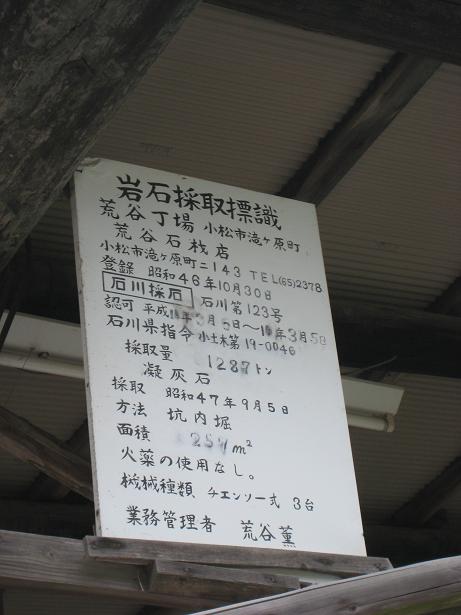 岩石採取標識
荒谷丁場 小松市滝ヶ原町
荒谷石材店
小松市滝ヶ原町ニ143 TEL(65)2378
登録 昭和46年10月30日
石川採石 石川第123号
認可 平成 年3月6日〜 年3月5日
石川県指令 小土木第19-0046
採取量 1287トン
凝灰石
採取 昭和47年9月5日
方法 坑内堀
面積 257m²
火薬の使用なし。
機械種類 チエンソー式 3台
業務管理者 荒谷薫